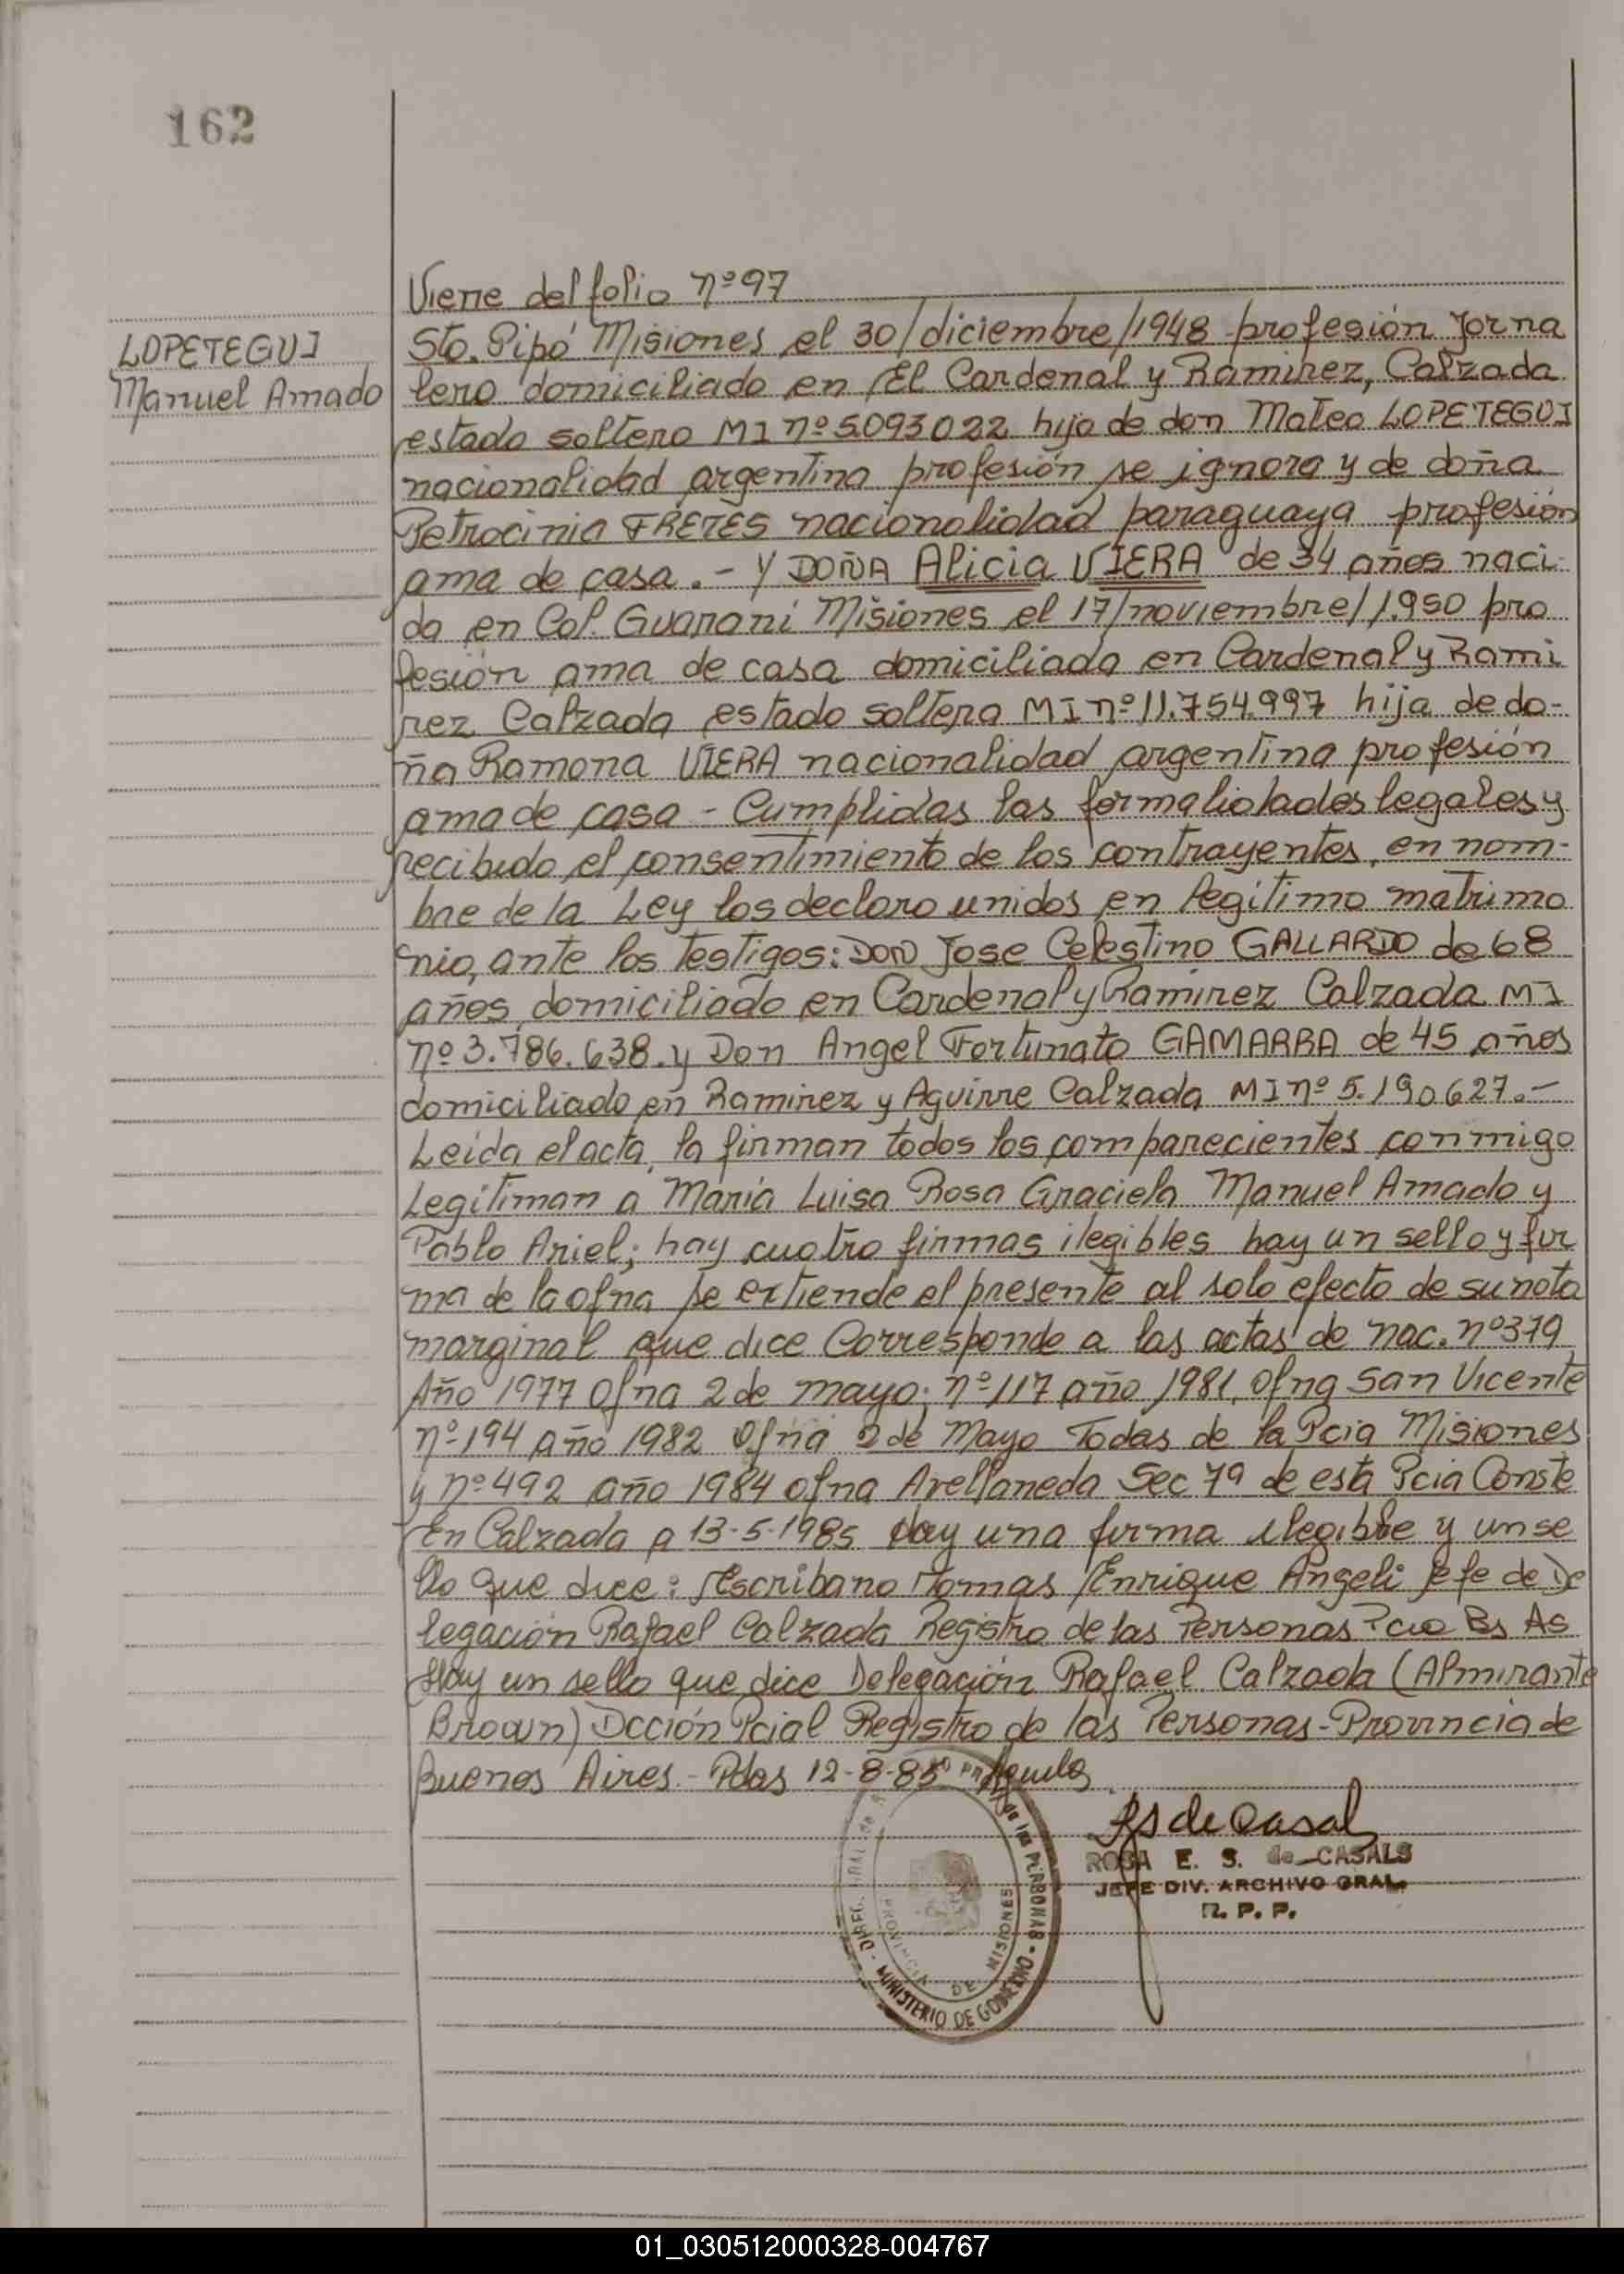 162
Viene del folio nº 97
LOPETEGUI
Manuel Amado
Sto. Pipó Misiones el 30/diciembre/1948 profesión Jorna
lero domiciliado en El Cardenal y Ramirez, Calzada
estado soltero MI nº 5.093.022 hijo de don Mateo LOPETEGUI
nacionalidad argentina profesión se ignora y de doña
Petrocinia FRETES nacionalidad paraguaya profesión
ama de casa.- Y DOÑA Alicia VIERA de 34 años naci-
da en Col. Guaraní Misiones el 17/noviembre/1.950 pro
fesión ama de casa domiciliada en Cardenal y Rami
rez Calzada estado soltera MI nº 11.754.997 hija de do-
ña Ramona VIERA nacionalidad argentina profesión
ama de casa - Cumplidas las formalidades legales y
recibido el consentimiento de los contrayentes, en nom-
bre de la Ley los declaro unidos en legítimo matrimo
nio, ante los testigos: DON Jose Celestino GALLARDO de 68
años domiciliado en Cardenal y Ramirez Calzada MI
nº 3.786.638 y Don Angel Fortunato GAMARRA de 45 años
domiciliado en Ramirez y Aguirre Calzada MI nº 5.190.627.-
Leída el acta, la firman todos los comparecientes conmigo
Legitiman a María Luisa Rosa Graciela Manuel Amado y
Pablo Ariel; hay cuatro firmas ilegibles hay un sello y fir
ma de la ofna se extiende el presente al solo efecto de su nota
marginal que dice Corresponde a las actas de nac. nº 379
Año 1977 Ofna 2 de mayo; nº 117 año 1981, Ofna San Vicente
nº 194 año 1982 Ofna 2 de Mayo Todas de la Pcia Misiones
y nº 492 año 1984 ofna Avellaneda Sec 7ª de esta Pcia Conste
En Calzada a 13-5-1985 Hay una firma ilegible y un se
llo que dice: Escribano Tomas Enrique Angeli Jefe de De
legación Rafael Calzada Registro de las Personas Pcia Bs As
Hay un sello que dice Delegación Rafael Calzada (Almirante
Brown) Dcción Pcial Registro de las Personas - Provincia de
Buenos Aires - Pdas 12-8-85
Rs de Casal
ROSA E. S. de CASALS
JEFE DIV. ARCHIVO GRAL.
R. P. P.
de las PERSONAS - MINISTERIO DE GOBIERNO - DIREC. GRAL de
PROVINCIA DE MISIONES
01_030512000328-004767